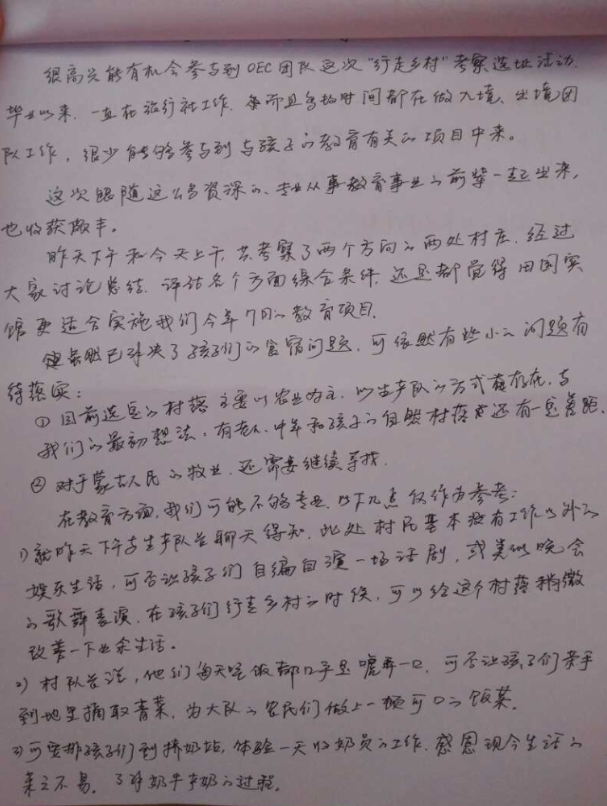 很高兴能有机会参与到OEC团队这次“行走乡村”考察选址活动.
毕业以来,一直在旅行社工作.而且多数时间都在做入境,出境团
队工作,很少能够参与到与孩子的教育有关的项目中来。
这次跟随这么多资深的、专业从事教育事业的前辈一起出来,
也收获颇丰。
昨天下午和今天上午,共考察了两个方向的两处村庄.经过
大家讨论总结.评估各个方面综合条件,还是都觉得田园实
馆更适合实施我们今年7月的教育项目.
虽然已解决了孩子们的食宿问题,可依然有些小的问题有
待落实:
①目前选邑的村落主要以农业为主.以生产队的方式在存在,与
我们的最初想法,有老人、中年和孩子的自然村落还有一定差距.
②对于蒙古人民的牧业.还需要继续寻找.
在教育方面,我们可能不够专业.以下几点仅作为参考:
1)就昨天下午与生产队长聊天得知,此处村民基本没有工作以外的
娱乐生活,可否让孩子们自编自演一场话剧,或类似晚会
的歌舞表演.在孩子们行走乡村的时候,可以给这个村落稍微
改善一下业余生活。
2)村队长说,他们每天吃饭都几乎是唬弄一口.可否让孩子们亲手
到地里摘取青菜,为大队的农民们做上一顿可口的饭菜.
3)可安排孩子们到挤奶站,体验一天收奶员的工作.感恩现今生活的
来之不易.了解奶牛产奶的过程.